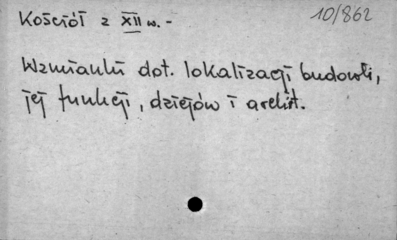 Kościół z XII w. -
10/862
Wzmianki dot. lokalizacji budowli,
jej funkcji, dziejów i archit.